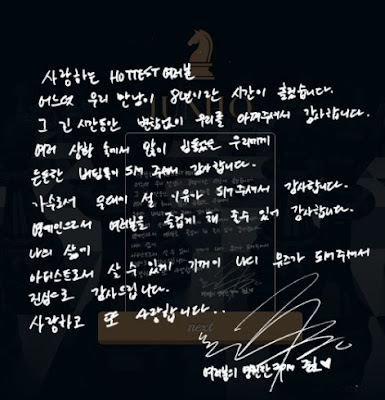 사랑하는 HOTTEST 여러분
어느덧 우리 만남이 8년이란 시간이 흘렀습니다.
그 긴 시간동안 변함없이 우리를 아껴주셔서 감사합니다.
여러 상황 속에서 많이 힘들었을 우리에게
든든한 버팀목이 되어 주셔서 감사합니다.
가수로서 무대에 설 이유가 되어주셔서 감사합니다.
연예인으로서 여러분을 즐겁게 해 줄수 있어 감사합니다.
나의 삶이
아티스트로서 살 수 있게 기꺼이 나의 뮤즈가 되어주셔서
진심으로 감사드립니다.
사랑하고 또 사랑합니다..
next
여러분의 영원한 2PM 준호♥